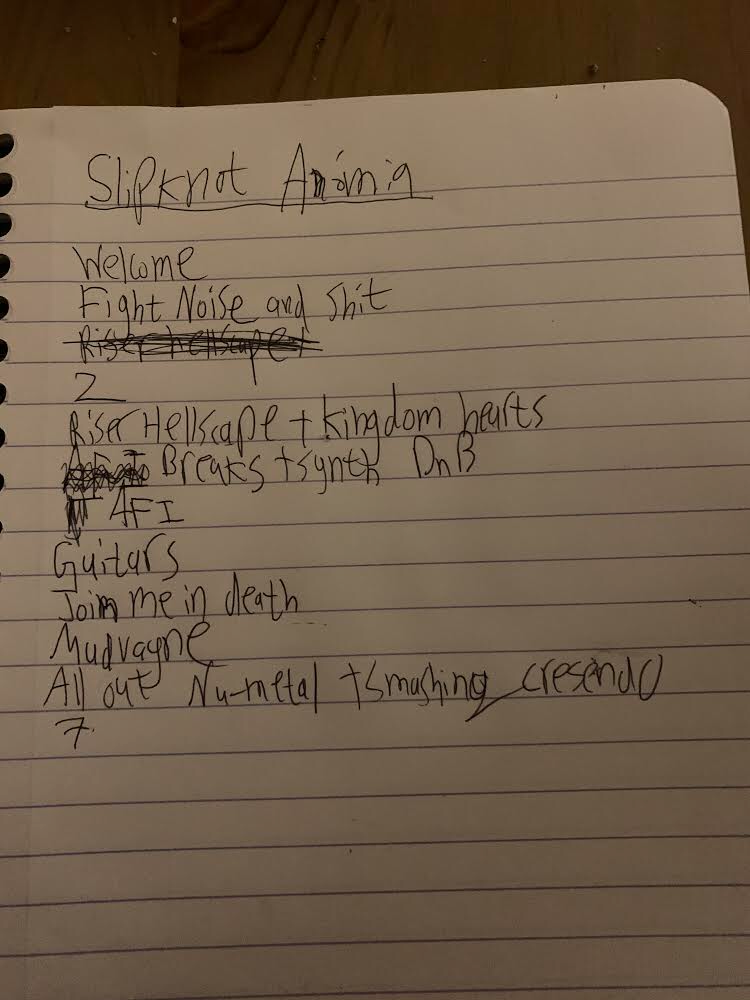 Slipknot Anima
Welcome
Fight Noise and shit
Riser hellscape
2
Riser Hellscape + kingdom hearts
Breaks + synth DnB
AFI
Guitars
Join me in death
Mudvayne
All out Nu-metal + smashing cresendo
7